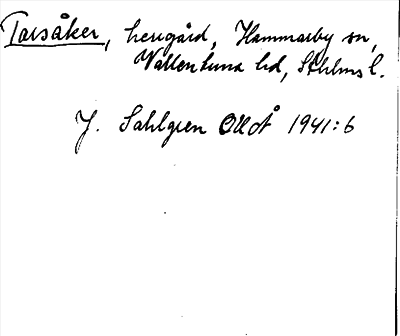 Torsåker, herrgård, Hammarby sn,
Vallentuna hd, Sthlms l.
J. Sahlgren OUoÅ 1941:6